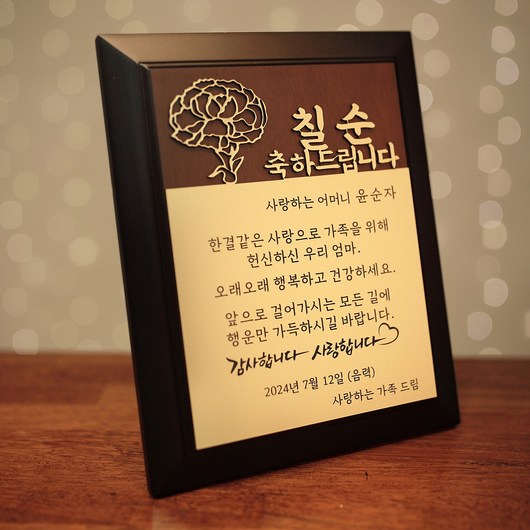 칠순
축하드립니다
사랑하는 어머니 윤순자
한결같은 사랑으로 가족을 위해
헌신하신 우리 엄마.
오래오래 행복하고 건강하세요.
앞으로 걸어가시는 모든 길에
행운만 가득하시길 바랍니다.
감사합니다 사랑합니다
2024년 7월 12일 (음력)
사랑하는 가족 드림